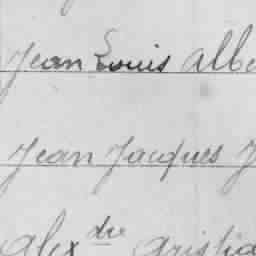 Jean Louis Albe
Jean Jacques J
Alex dre Aristid